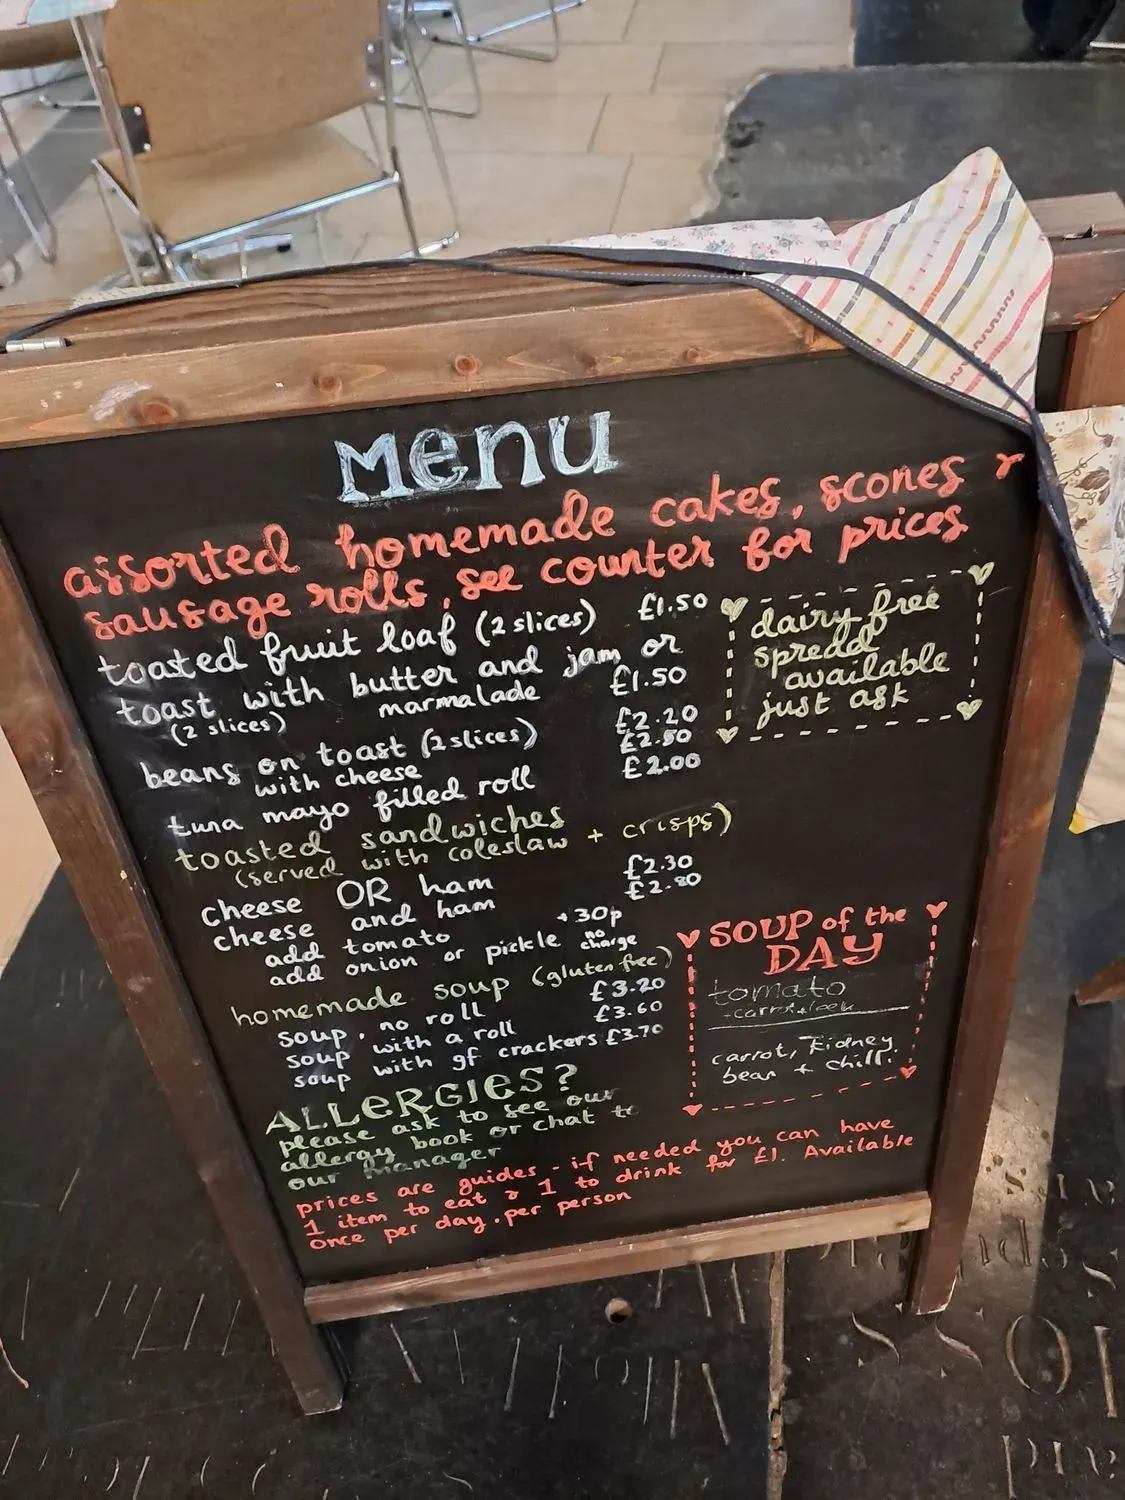 Menu
assorted homemade cakes, scones &
sausage rolls, see counter for prices
toasted fruit loaf (2 slices) £1.50
toast with butter and jam or
marmalade £1.50
(2 slices)
beans on toast (2 slices) £2.20
with cheese £2.80
tuna mayo filled roll £2.00
dairy free
spread
available
just ask
toasted sandwiches
(served with coleslaw + crisps)
cheese OR ham £2.30
cheese and ham £2.80
add tomato +30p
add onion or pickle no charge
homemade soup (gluten free)
soup, no roll £3.20
soup with a roll £3.60
soup with gf crackers £3.70
SOUP of the
DAY
tomato
+carrot+leek
carrot, kidney
bean + chilli
ALLERGIES?
please ask to see our
allergy book or chat to
our manager
prices are guides - if needed you can have
1 item to eat & 1 to drink for £1. Available
once per day, per person